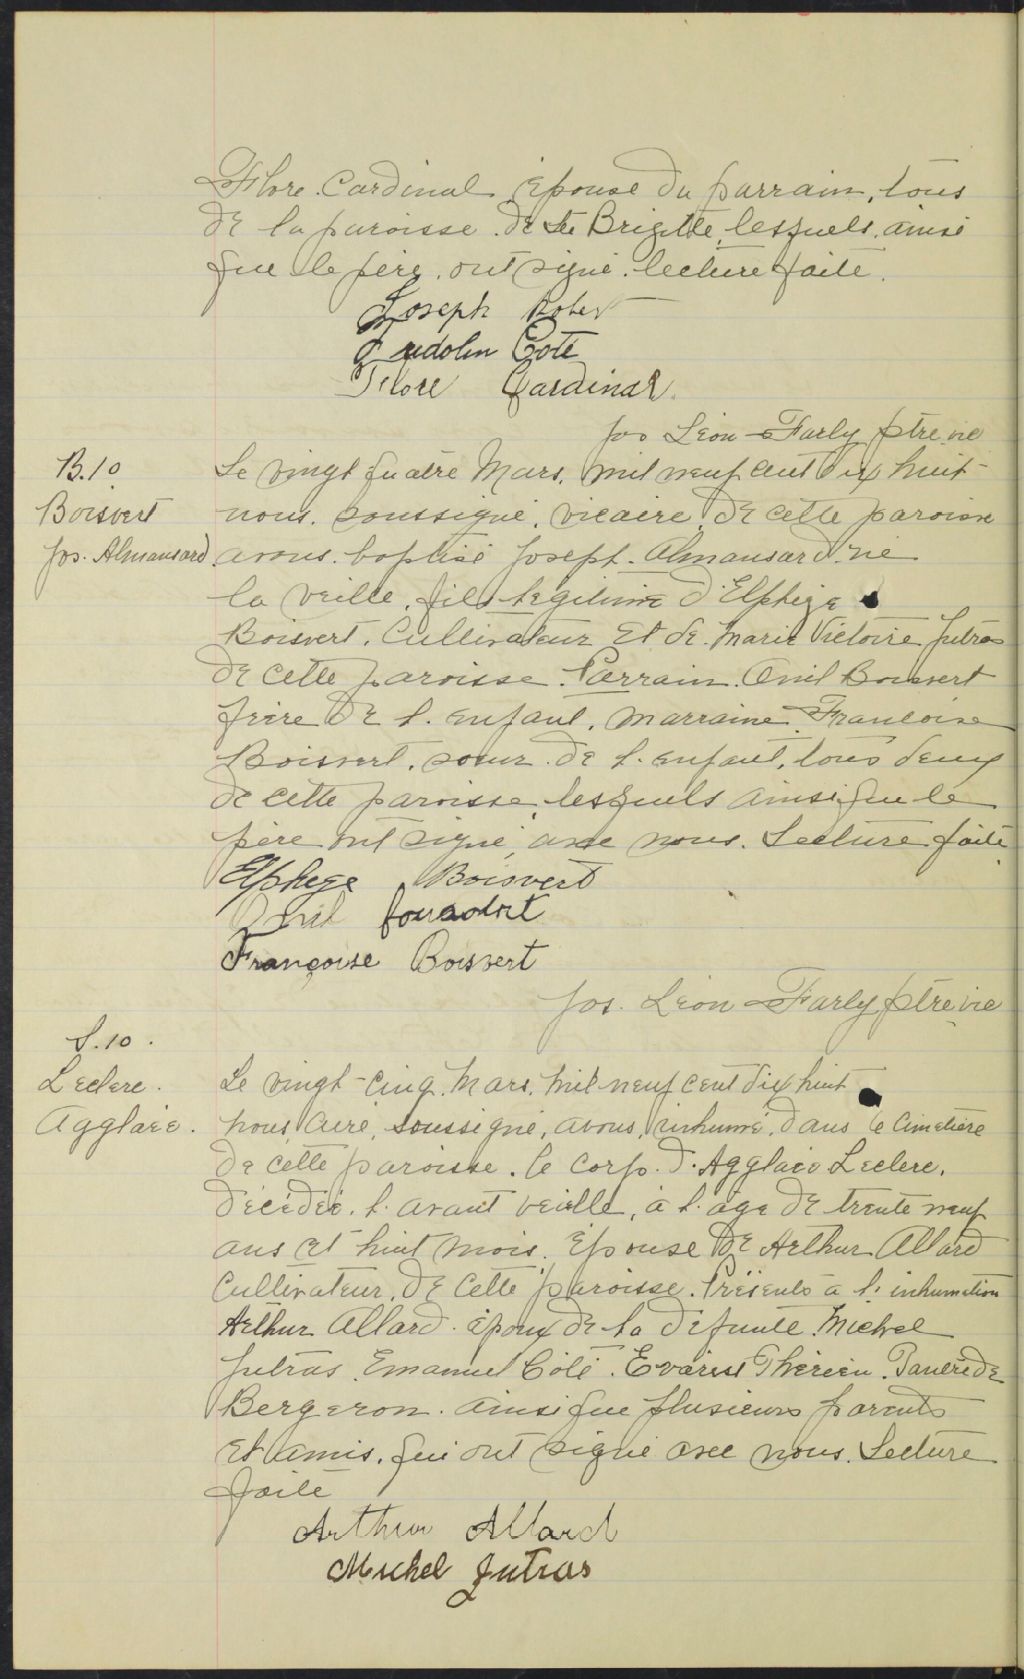 Flore Cardinal épouse du parrain, tous
de la paroisse de Ste Brigitte, lesquels, ainsi
que le père, ont signé. lecture faite.
Joseph Rober
Gudolin Coté
Flore Cardinal
Jos Léon Farly ptre vic
B.10
Boisvert
Jos. Almansard
Le vingt quatre Mars, mil neuf cent dix huit
nous, soussigné, vicaire, de cette paroisse
avons baptisé Joseph Almansard né
la veille, fils légitime d'Elphège
Boisvert, Cultivateur et de Marie Victoire Jutras
de cette paroisse. Parrain Boisvert
frère de l'enfant, marraine Françoise
Boisvert, soeur de l'enfant, tous deux
de cette paroisse, lesquels ainsi que le
père ont signé avec nous. Lecture faite
Elphege Boisvert
Françoise Boisvert
Jos. Léon Farly ptre vic
S.10.
Leclerc.
Agglaée.
Le vingt-cinq Mars, mil neuf cent dix huit
nous, curé, soussigné, avons, inhumé, dans le cimetière
de cette paroisse, le corps d'Agglaée Leclerc,
décédée, l'avant veille, à l'âge de trente neuf
ans et huit mois, épouse de Arthur Allard
Cultivateur, de cette paroisse. Présents à l'inhumation
Arthur Allard époux de la défunte Michel
Jutras Emanuel Côté. Evariste Thérien. Tancrède
Bergeron. ainsi que plusieurs parents
et amis, qui ont signé avec nous. Lecture
faite
Arthur Allard
Michel Jutras